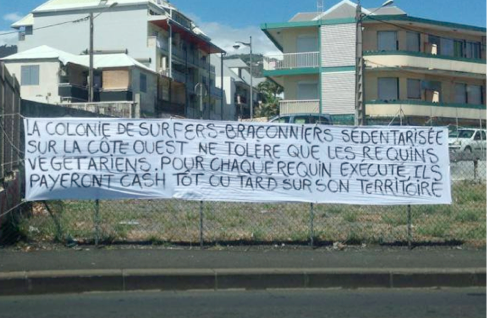 LA COLONIE DE SURFERS-BRACONNIERS SEDENTARISÉE
SUR LA CÔTE OUEST NE TOLÈRE QUE LES REQUINS
VEGETARIENS. POUR CHAQUE REQUIN EXECUTE, ILS
PAYERONT CASH TÔT OU TARD SUR SON TERRITOIRE